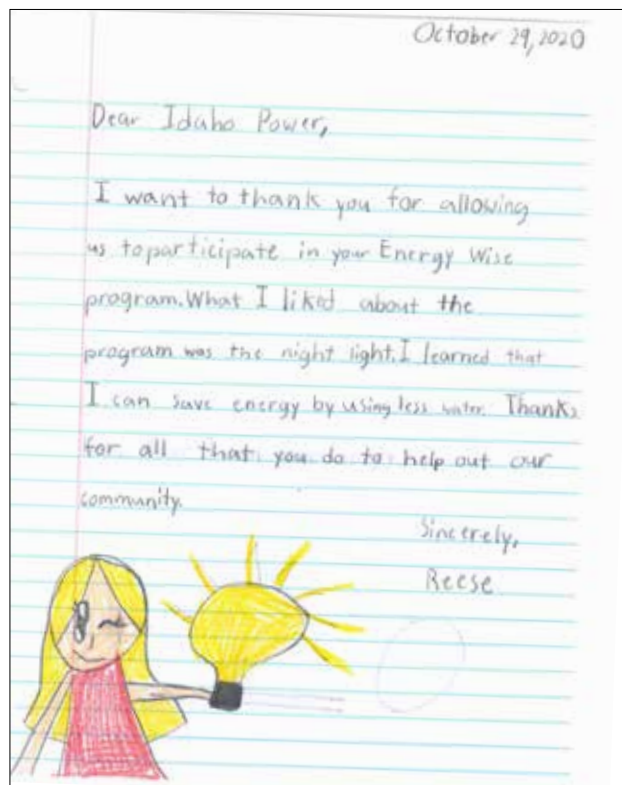 October 29, 2020
Dear Idaho Power,
I want to thank you for allowing
us to participate in your Energy Wise
program. What I liked about the
program was the night light. I learned that
I can save energy by using less water. Thanks
for all that you do to help out our
community.
Sincerely,
Reese